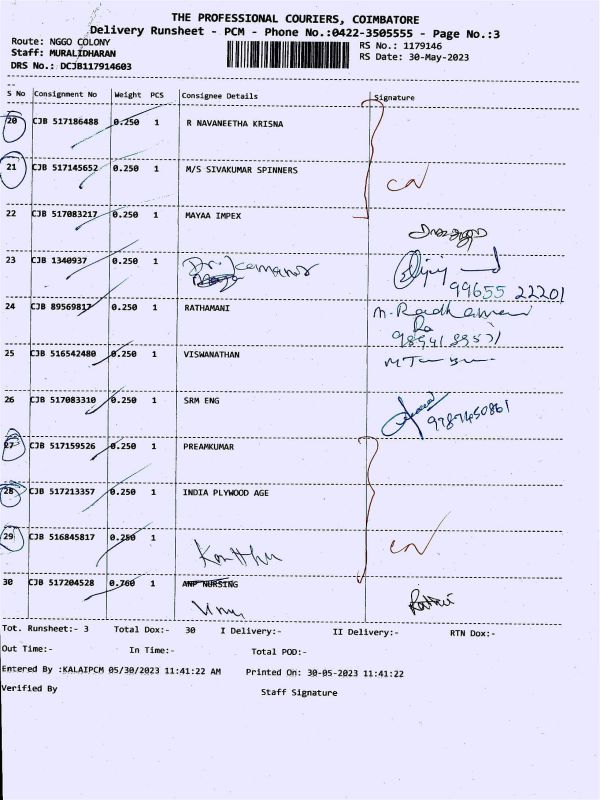 THE PROFESSIONAL COURIERS, COIMBATORE
Delivery Runsheet - PCM - Phone No.:0422-3505555 - Page No.:3
Route: NGGO COLONY RS No.: 1179146
Staff: MURALIDHARAN RS Date: 30-May-2023
DRS No.: DCJB117914603
S No Consignment No Weight PCS Consignee Details Signature
20 CJB 517186488 0.250 1 R NAVANEETHA KRISNA
21 CJB 517145652 0.250 1 M/S SIVAKUMAR SPINNERS
CN
22 CJB 517083217 0.250 1 MAYAA IMPEX
23 CJB 1340937 0.250 1
99655 22201
24 CJB 89569817 0.250 1 RATHAMANI
25 CJB 516542480 0.250 1 VISWANATHAN
26 CJB 517083310 0.250 1 SRM ENG
27 CJB 517159526 0.250 1 PREAMKUMAR
28 CJB 517213357 0.250 1 INDIA PLYWOOD AGE
29 CJB 516845817 0.250 1
CN
30 CJB 517204528 0.760 1 ANP NURSING
Tot. Runsheet:- 3 Total Dox:- 30 I Delivery:- II Delivery:- RTN Dox:-
Out Time:- In Time:- Total POD:-
Entered By :KALAIPCM 05/30/2023 11:41:22 AM Printed On: 30-05-2023 11:41:22
Verified By Staff Signature